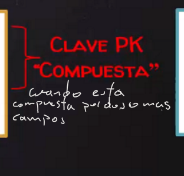 CLAVE PK
"COMPUESTA"
cuando esta
compuesta por dos o mas
campos